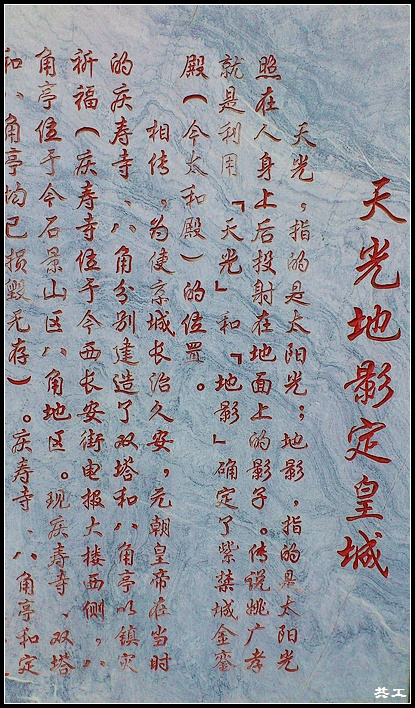 天光地影定皇城
天光，指的是太阳光；地影，指的是太阳光
照在人身上后投射在地面上的影子。传说姚广孝
就是利用「天光」和「地影」确定了紫禁城金銮
殿（今太和殿）的位置。
相传，为使京城长治久安，元朝皇帝在当时
的庆寿寺、八角分别建造了双塔和八角亭以镇灾
祈福（庆寿寺位于今西长安街电报大楼西侧，八
角亭位于今石景山区八角地区。现庆寿寺、双塔
和八角亭均已损毁无存）。庆寿寺、八角亭和定
共工